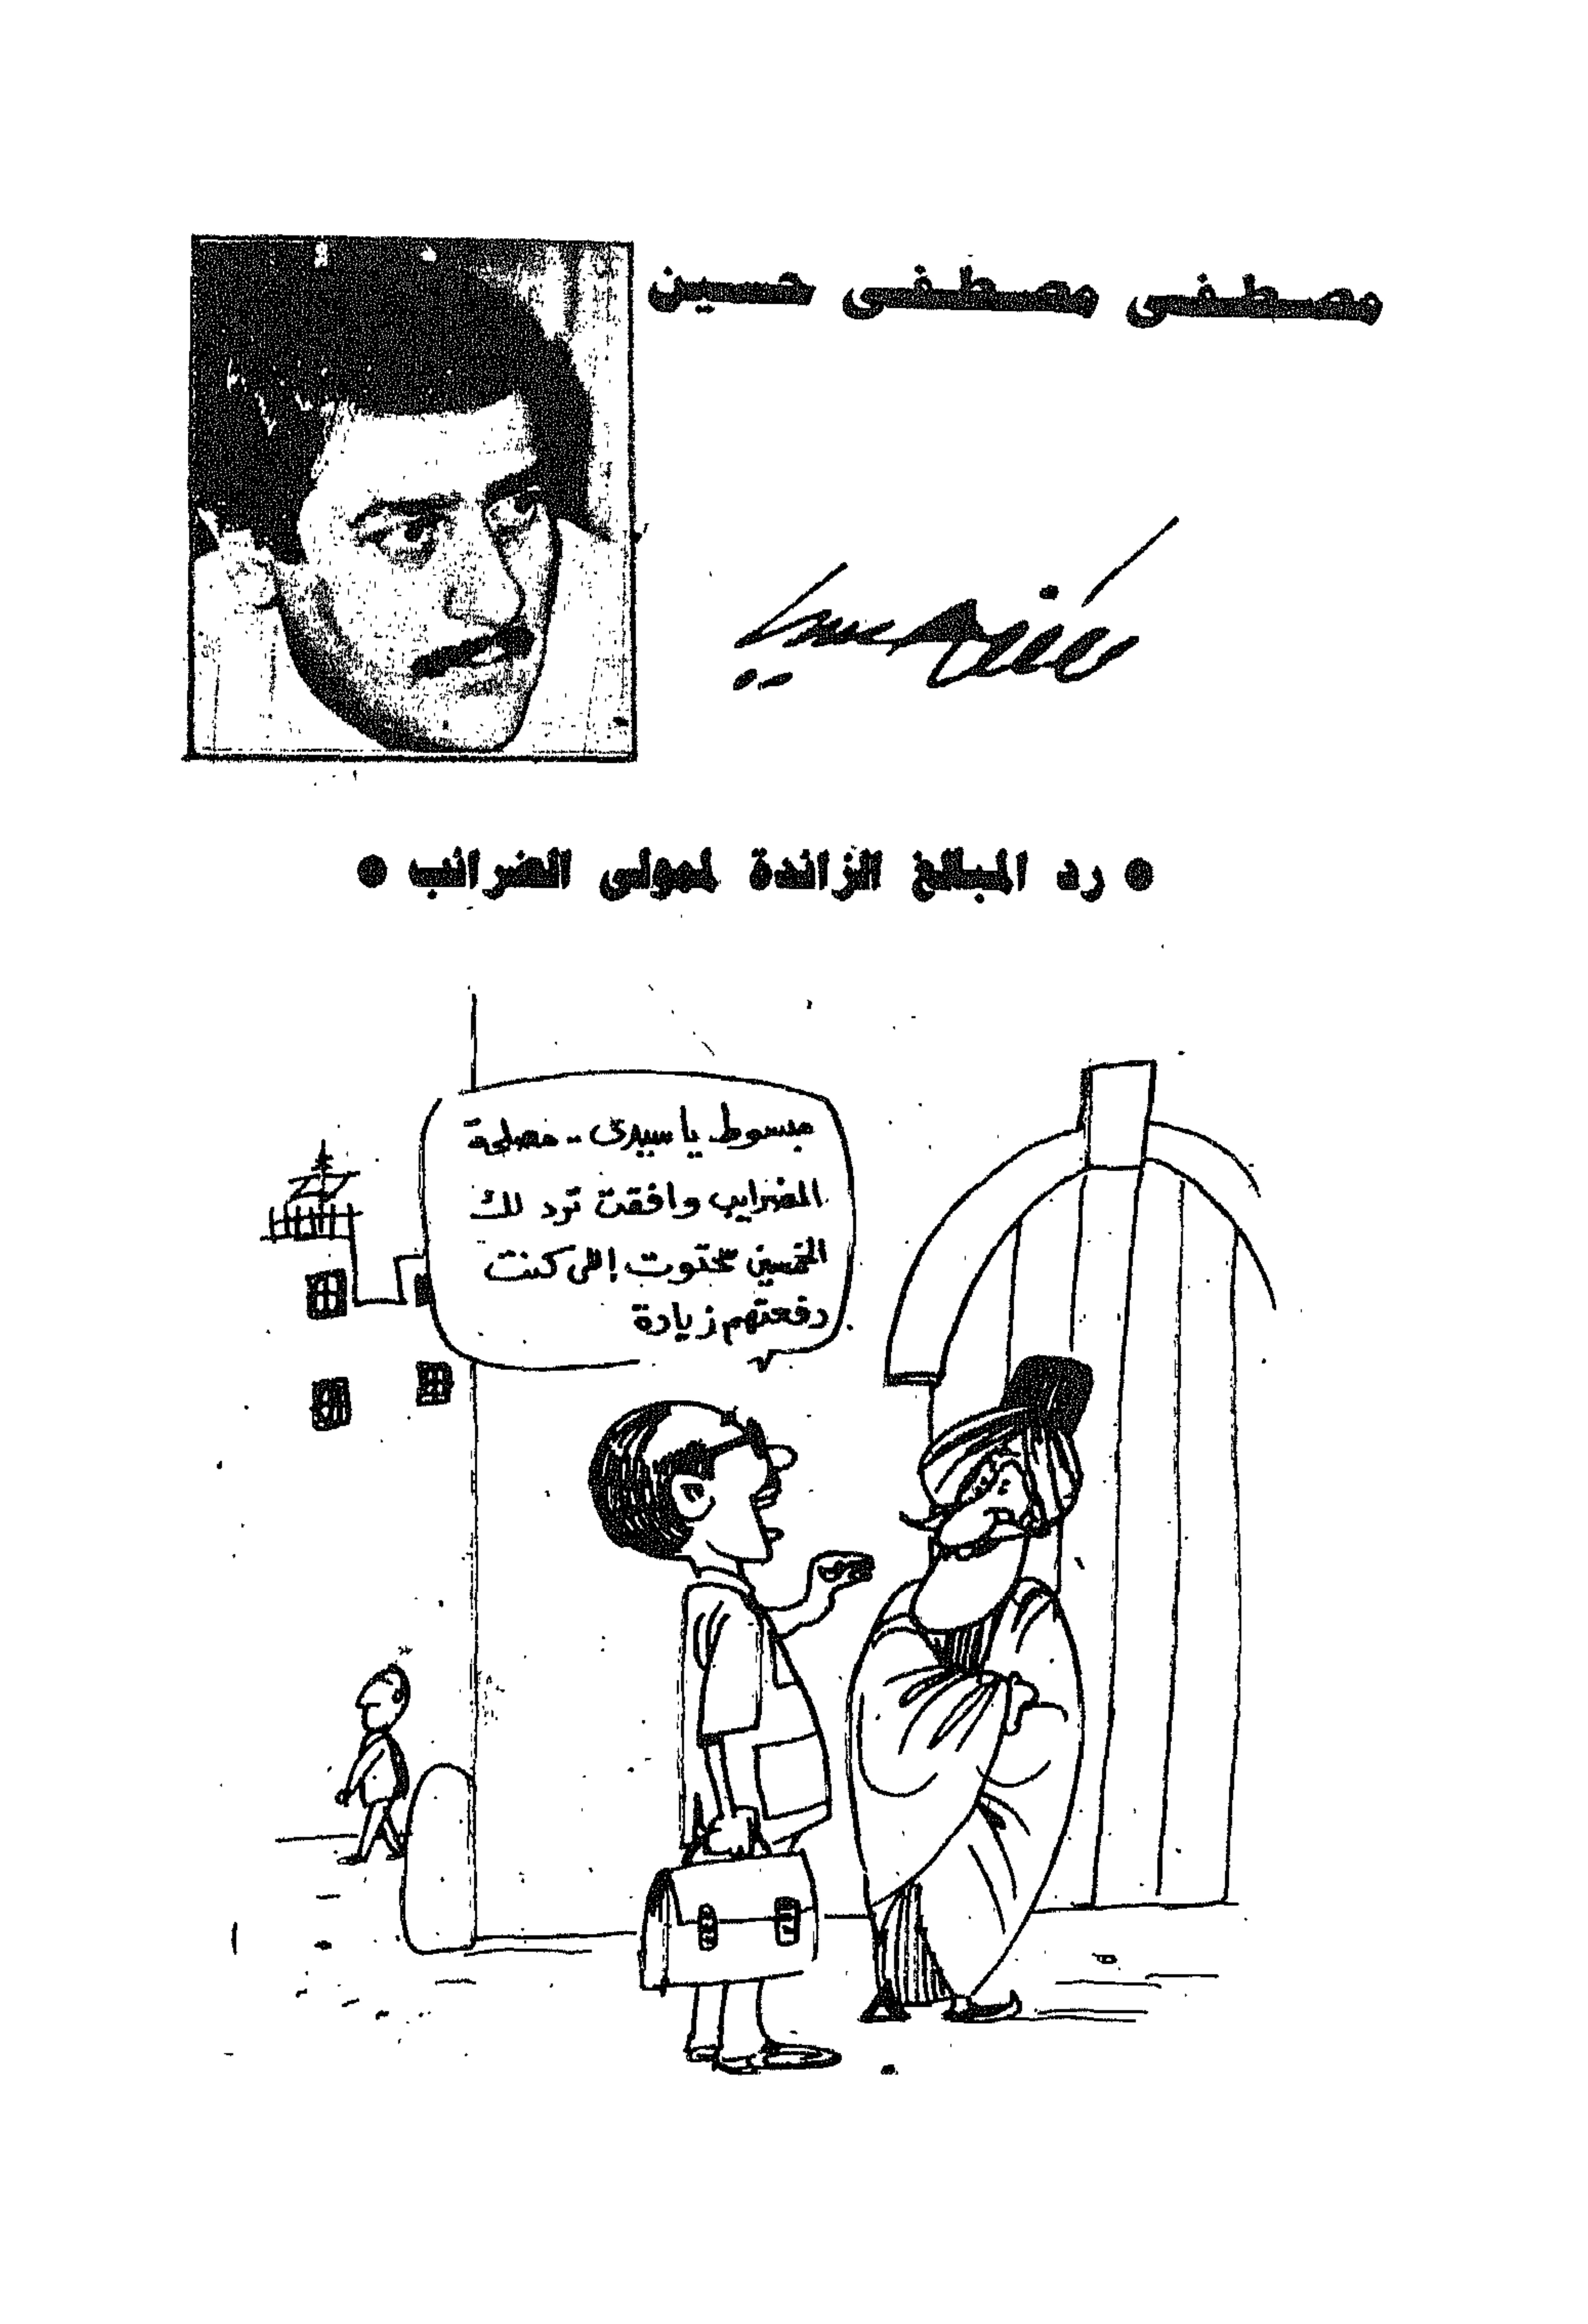 مصطفى مصطفى حسين
● رد المبالغ الزائدة لممولى الضرائب ●
مبسوط يا سيدى .. مصلحة
الضرايب وافقت ترد لك
الخمسين سحتوت إللى كنت
دفعتهم زيادة